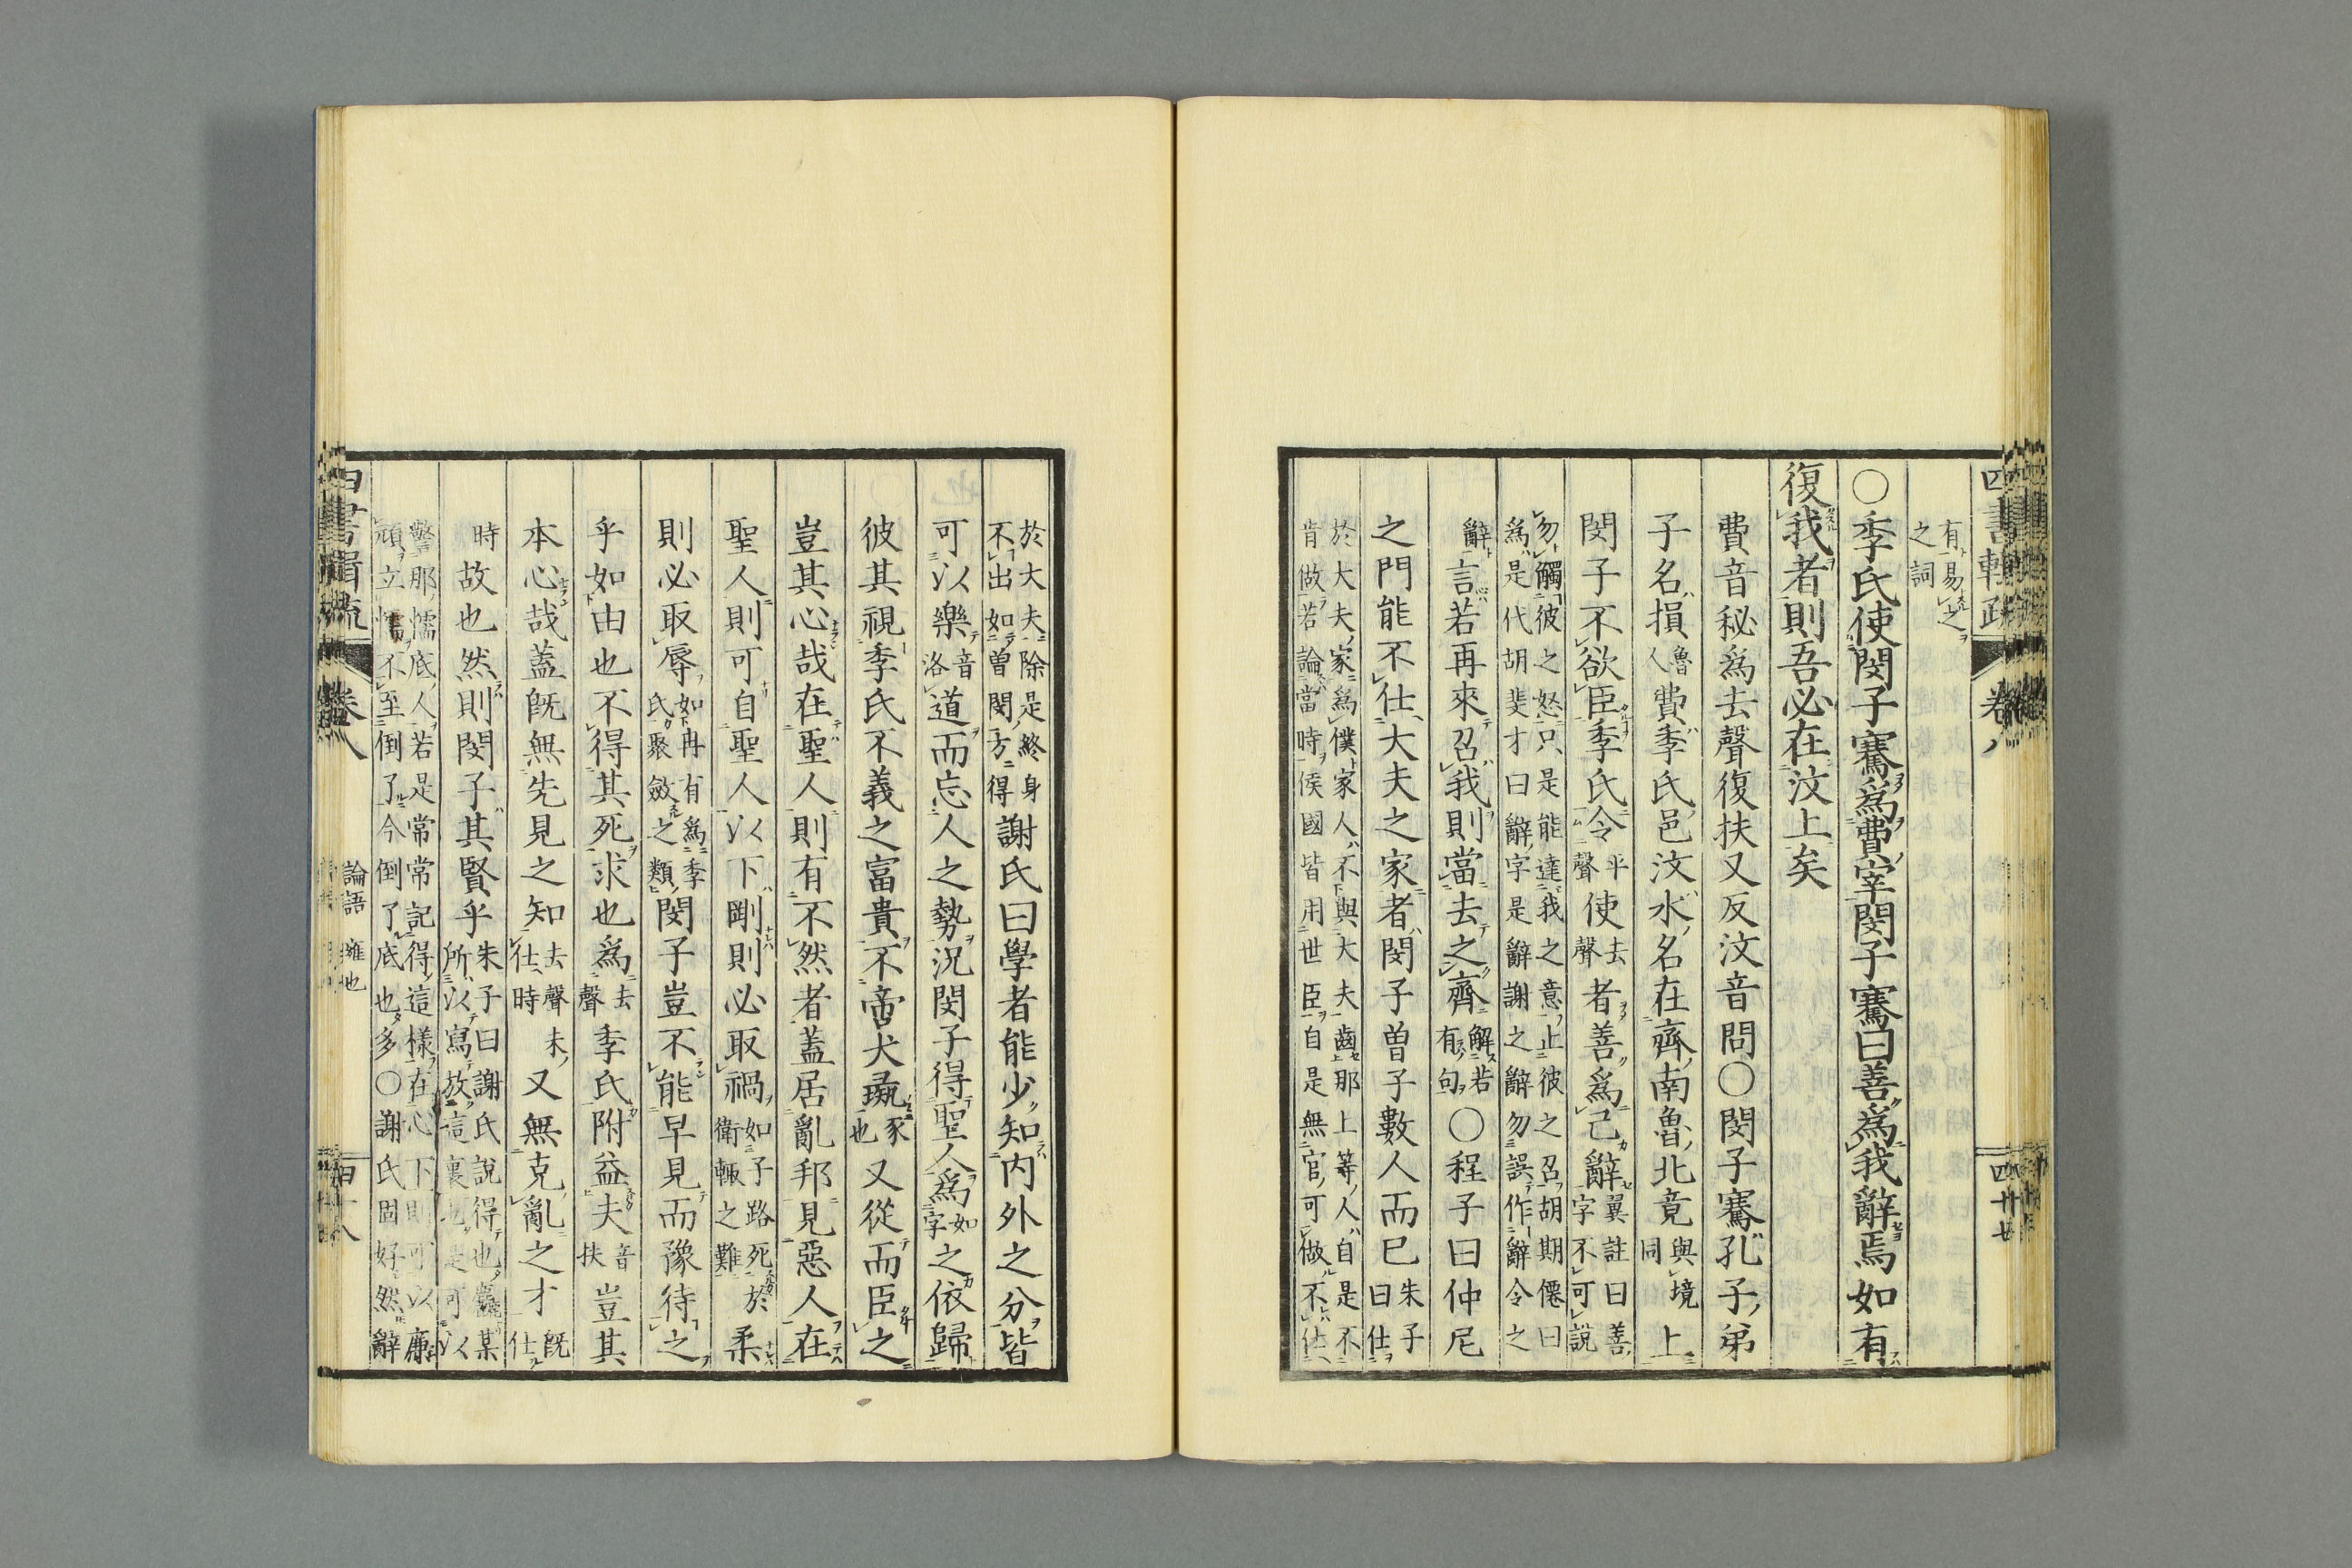 四書輯疏 卷八 四十七
有易之之詞
○季氏使閔子騫爲費宰閔子騫曰善爲我辭焉如有
復我者則吾必在汶上矣
費音秘爲去聲復扶又反汶音問○閔子騫孔子弟
子名損魯人費季氏邑汶水名在齊南魯北竟與境同上
閔子不欲臣季氏令平聲使去聲者善爲己辭翼註曰善字不可說
勿觸彼之怒只是能達我之意止彼之召胡期僊曰爲是代胡斐才曰辭字是辭謝之辭勿誤作辭令之
辭言若再來召我則當去之齊解若有句○程子曰仲尼
之門能不仕大夫之家者閔子曾子數人而已朱子曰仕
於大夫家爲僕家人不與大夫齒那上等人自是不肯做若論當時侯國皆用世臣自是無官可做不仕
於大夫除是終身不出如曾閔方得謝氏曰學者能少知内外之分皆
可以樂音洛道而忘人之勢況閔子得聖人爲如字之依歸
彼其視季氏不義之富貴不啻犬彘豕也又從而臣之
豈其心哉在聖人則有不然者蓋居亂邦見惡人在
聖人則可自聖人以下剛則必取禍如子路死於衛輒之難柔
則必取辱如冉有爲季氏聚斂之類閔子豈不能早見而豫待之
乎如由也不得其死求也爲去聲季氏附益夫音扶豈其
本心哉蓋旣無先見之知去聲未仕時又無克亂之才旣仕
時故也然則閔子其賢乎朱子曰謝氏說得也某所以寫放這裏是可以
警那懦底人若是常常記得這樣在心下則可以廉頑立懦不至倒了今倒了底也多○謝氏固好然辭
四書輯疏 卷八 論語 雍也 四十八